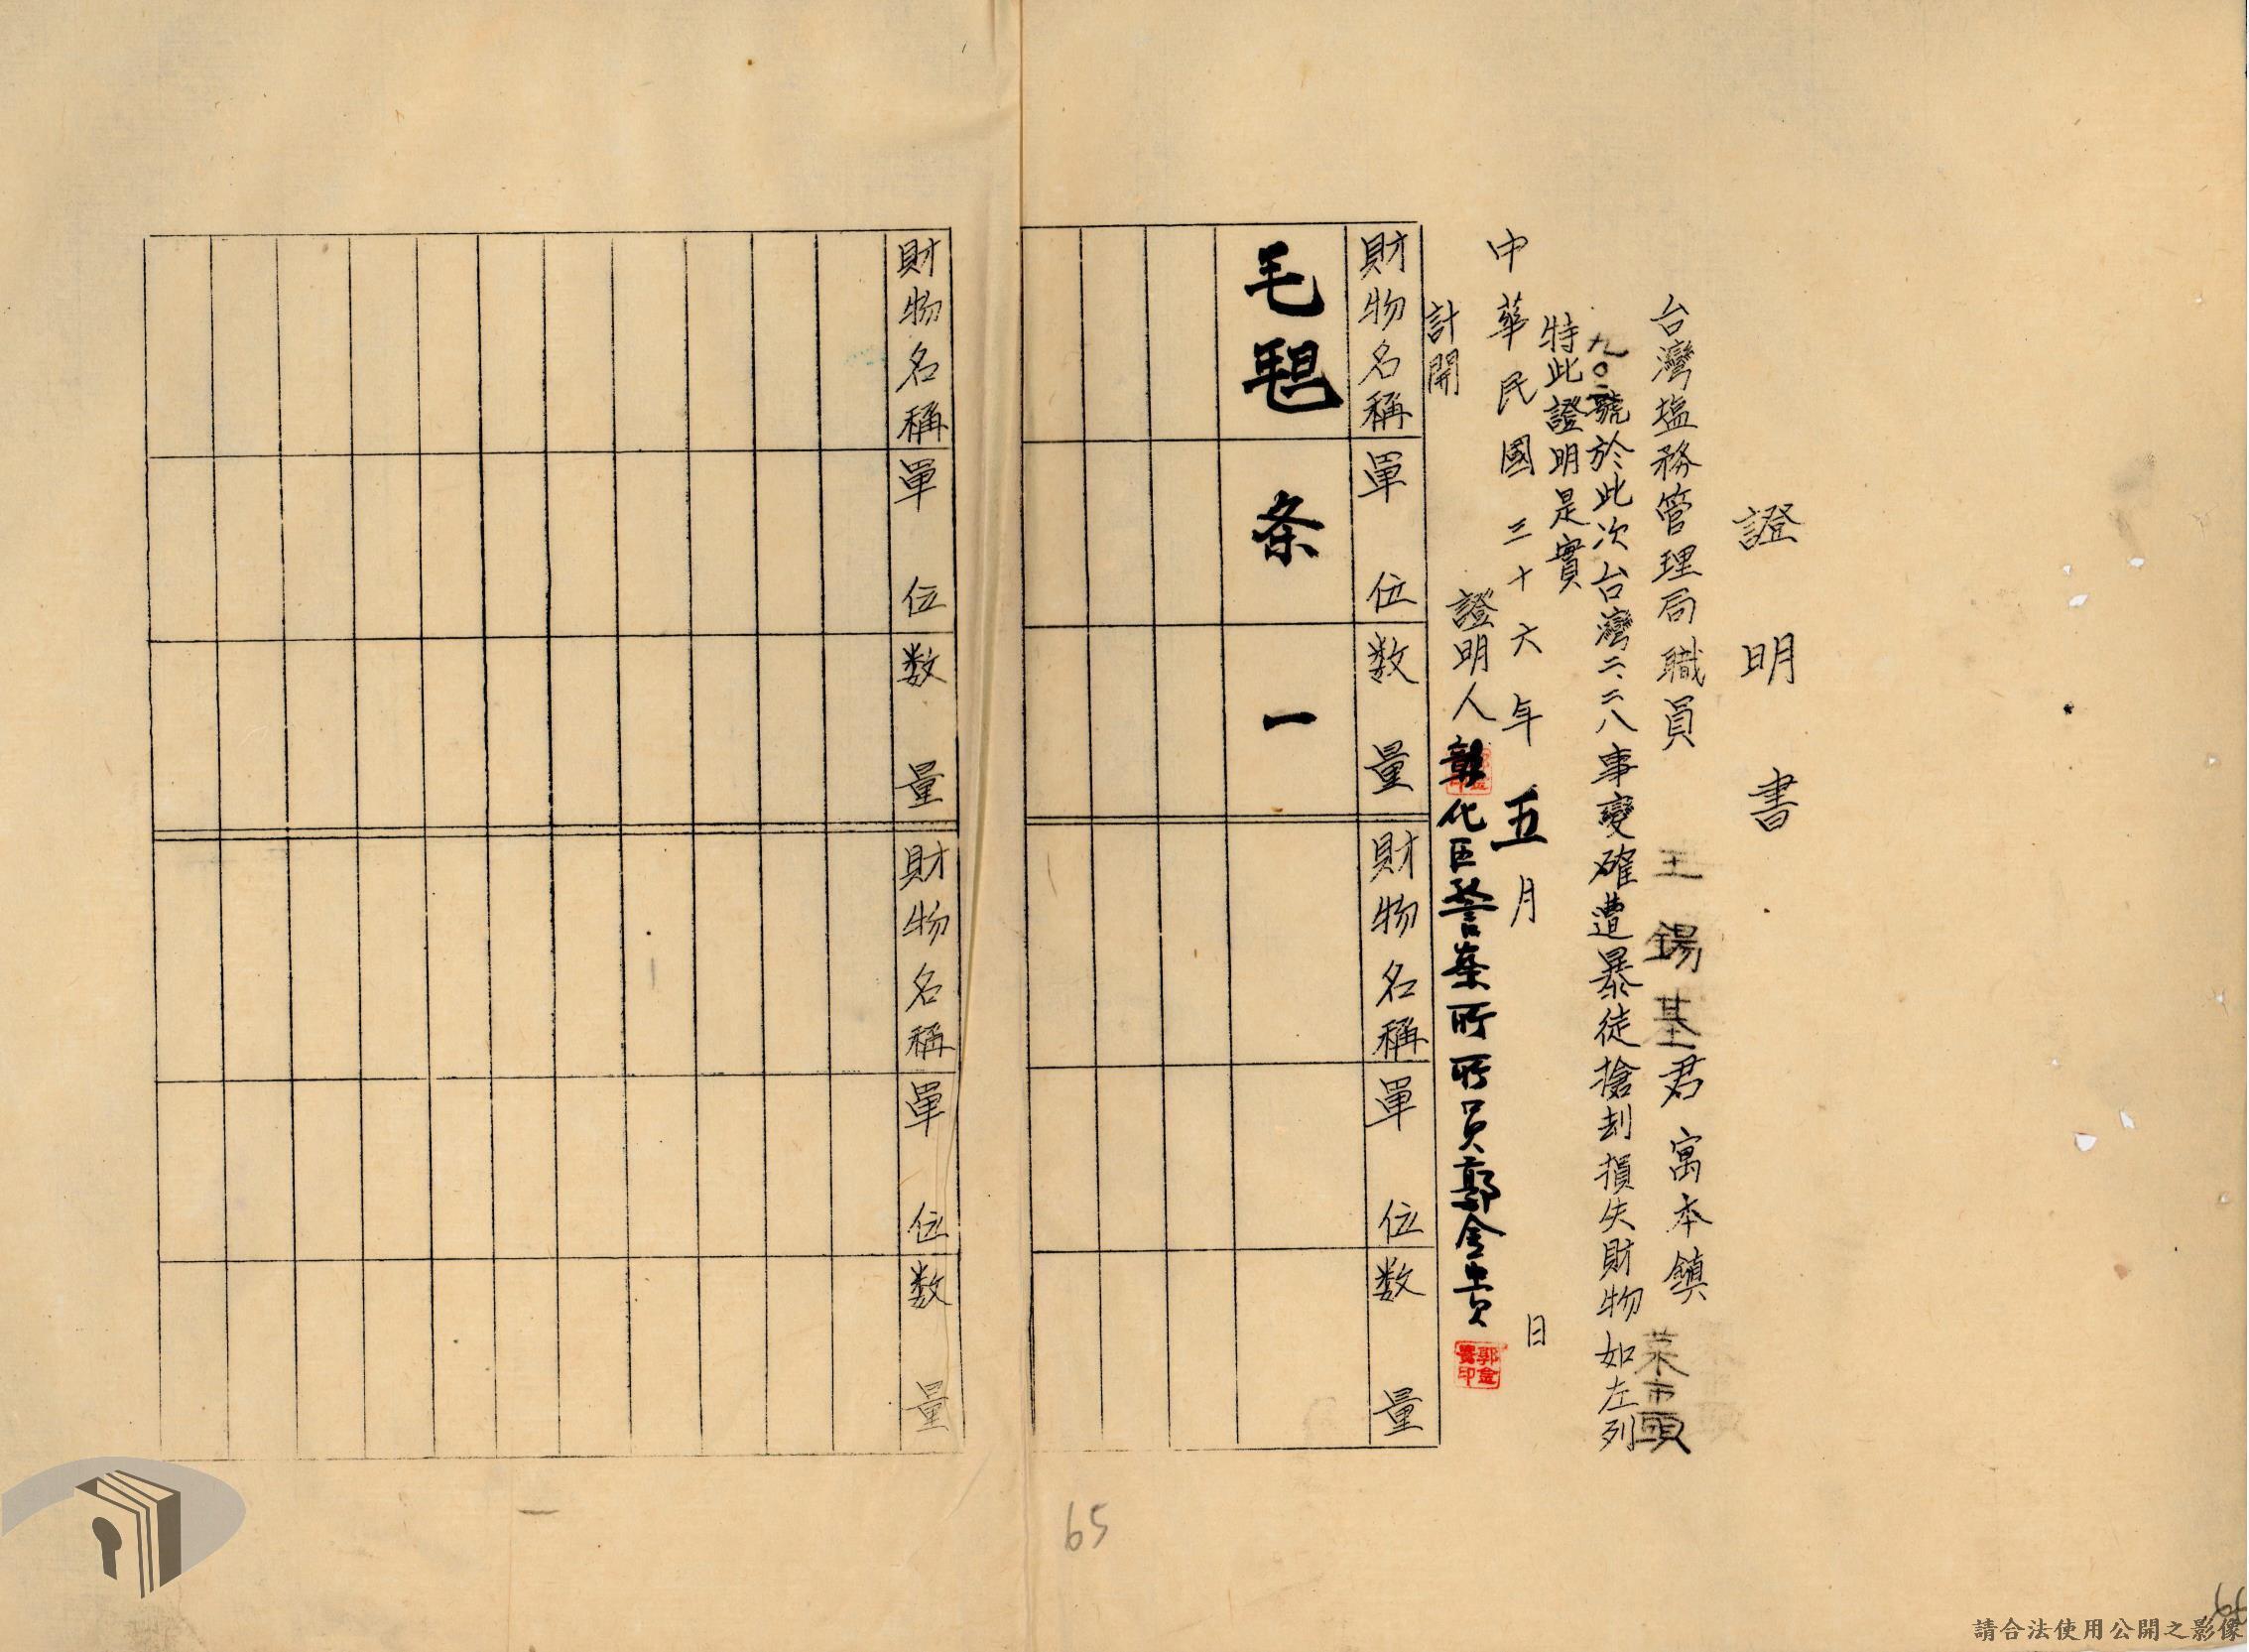 證明書
台灣塩務管理局職員王錫基君寓本鎮菜市頭
九〇二號於此次台灣二、二八事變確遭暴徒搶刦損失財物如左列
特此證明是實
中華民國三十六年五月 日
證明人彰化區警察所所員郭金寶
郭金寶印
計開
財物名稱 單位 数量 財物名稱 單位 数量
毛毯 条 一
財物名稱 單位 数量 財物名稱 單位 数量
65
請合法使用公開之影像